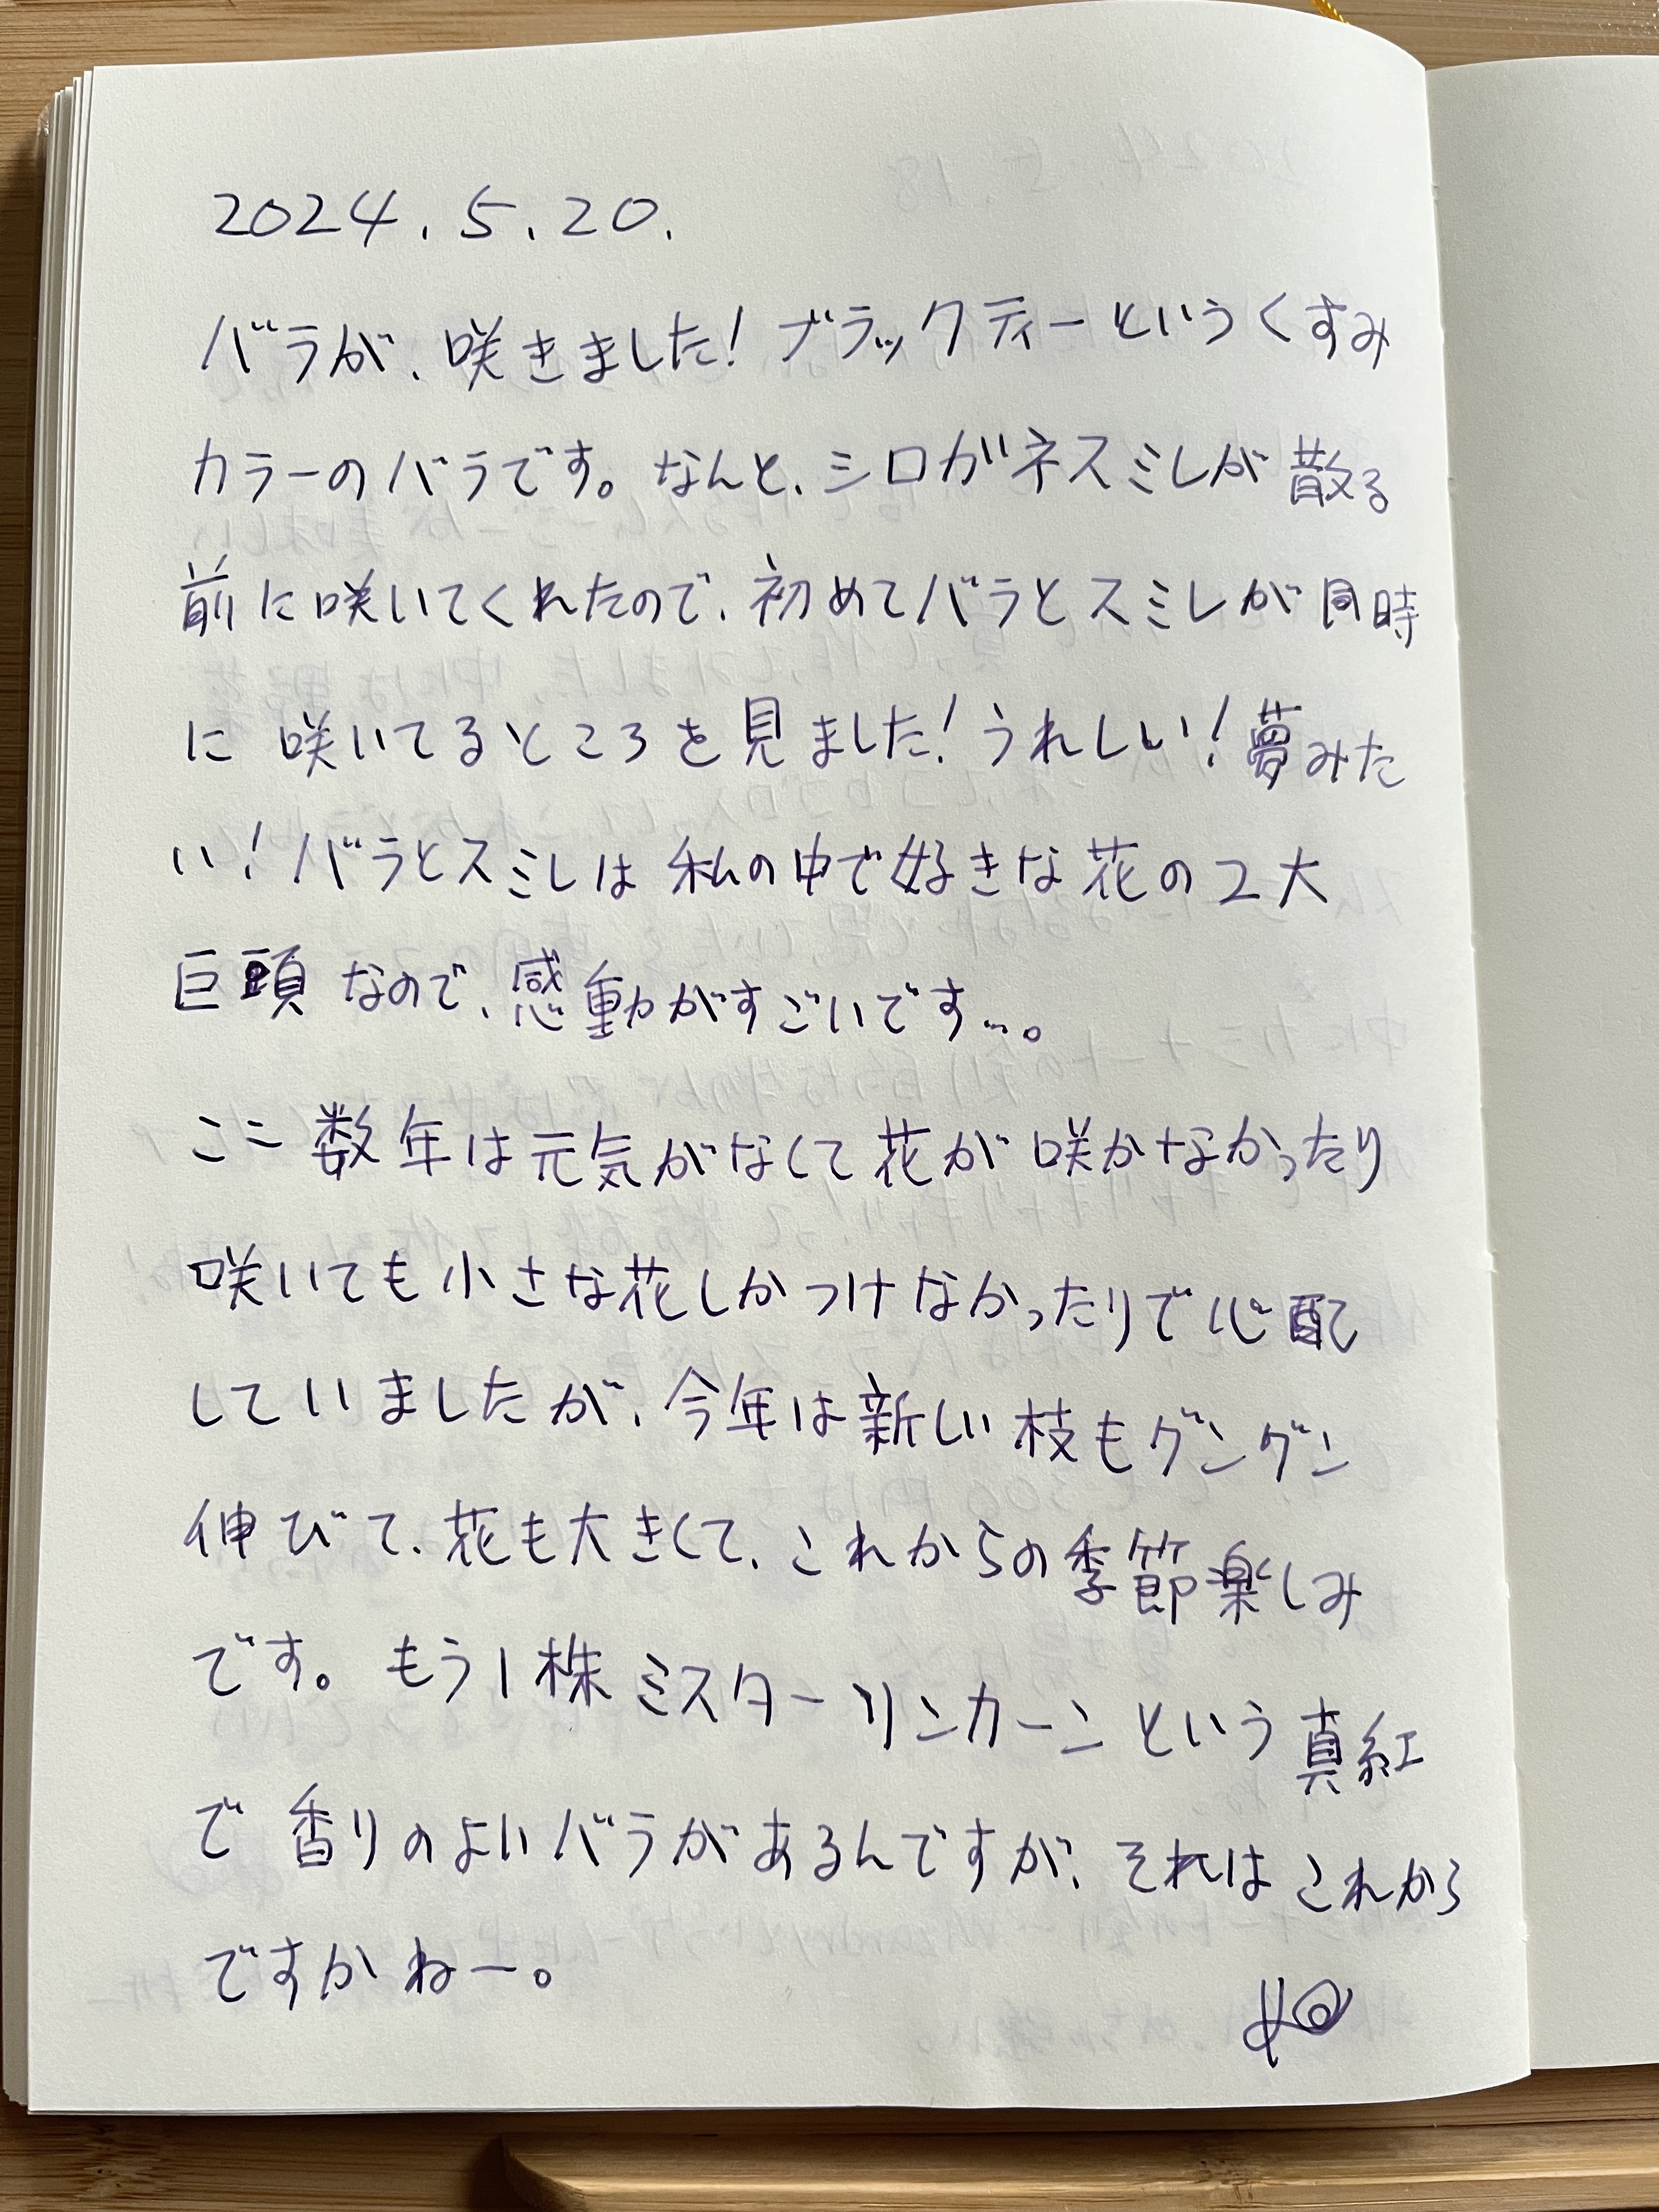 2024.5.20.
バラが、咲きました!ブラックティーというくすみ
カラーのバラです。なんと、シロガネスミレが散る
前に咲いてくれたので、初めてバラとスミレが同時
に咲いてるところを見ました!うれしい!夢みた
い!バラとスミレは私の中で好きな花の2大
巨頭なので、感動がすごいです…。
ここ数年は元気がなくて花が咲かなかったり
咲いても小さな花しかつけなかったりで心配
していましたが、今年は新しい枝もグングン
伸びて、花も大きくて、これからの季節楽しみ
です。もう1株ミスターリンカーンという真紅
で香りのよいバラがあるんですが、それはこれから
ですかねー。